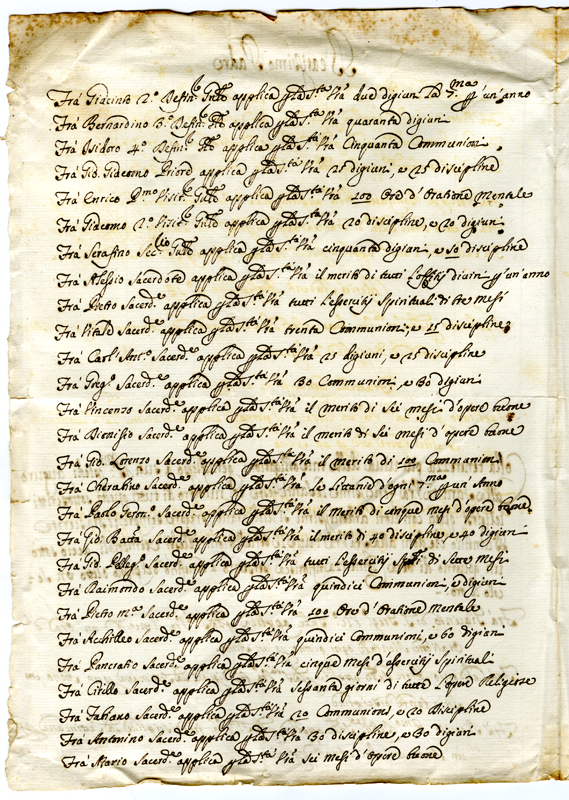 Beatissimo Padre
Frà Giacinto 2.º Defin.re Gnãle applica p la S.ta Vrã due digiuni la 7.ma p un'anno
Frà Bernardino 3.º Defin.re Gnãle applica p la S.ta Vrã quaranta digiuni
Frà Isidoro 4.º Defin.re Gnãle applica p la S.ta Vrã Cinquanta Communioni
Frà Gio. Giacomo Priore applica p la S.ta Vrã 25 digiuni, e 25 discipline
Frà Enrico P.mo Visit.re Gnãle applica p la S.ta Vrã 100 Ore d'Oratione Mentale
Frà Giacomo 2.º Visit.re Gnãle applica p la S.ta Vrã 20 discipline, e 20 digiuni
Frà Serafino Sec.rio Gnãle applica p la S.ta Vrã cinquanta digiuni, e 50 discipline
Frà Alessio Sacerdote applica p la S.ta Vrã il merito di tutti l'offitij divini p un'anno
Frà Pietro Sacerd.e applica p la S.ta Vrã tutti l'essercitij Spirituali di tre mesi
Frà Vitale Sacerd.e applica p la S.ta Vrã trenta Communioni, e 15 discipline
Frà Carl'Ant.º Sacerd.e applica p la S.ta Vrã 25 digiuni, e 25 discipline
Frà Greg.º Sacerd.e applica p la S.ta Vrã 30 Communioni, e 30 digiuni
Frà Vincenzo Sacerd.e applica p la S.ta Vrã il merito di Sei mesi d'opere buone
Frà Dionisio Sacerd.e applica p la S.ta Vrã il merito di Sei mesi d'opere buone
Frà Gio. Lorenzo Sacerd.e applica p la S.ta Vrã il merito di 100 Communioni
Frà Cherubino Sacerd.e applica p la S.ta Vrã le Littanie d'ogni 7.ma p un'Anno
Frà Paolo Geron.º Sacerd.e applica p la S.ta Vrã il merito di cinque mesi d'opere buone
Frà Gio. Batta Sacerd.e applica p la S.ta Vrã il merito di 40 discipline, e 40 digiuni
Frà Gio. Pelleg.º Sacerd.e applica p la S.ta Vrã tutti l'essercitij Spũali di Sette Mesi
Frà Raimondo Sacerd.e applica p la S.ta Vrã quindici Communioni, e digiuni
Frà Pietro M.a Sacerd.e applica p la S.ta Vrã 100 Ore d'Oratione Mentale
Frà Achilleo Sacerd.e applica p la S.ta Vrã quindici Communioni, e 60 digiuni
Frà Pancratio Sacerd.e applica p la S.ta Vrã cinque mesi d'essercitij Spirituali
Frà Cirillo Sacerd.e applica p la S.ta Vrã sessanta giorni di tutte l'opere Religiose
Frà Fabiano Sacerd.e applica p la S.ta Vrã 20 Communioni, e 20 Discipline
Frà Antonino Sacerd.e applica p la S.ta Vrã 30 discipline, e 30 digiuni
Frà Mario Sacerd.e applica p la S.ta Vrã sei mesi d'opere buone